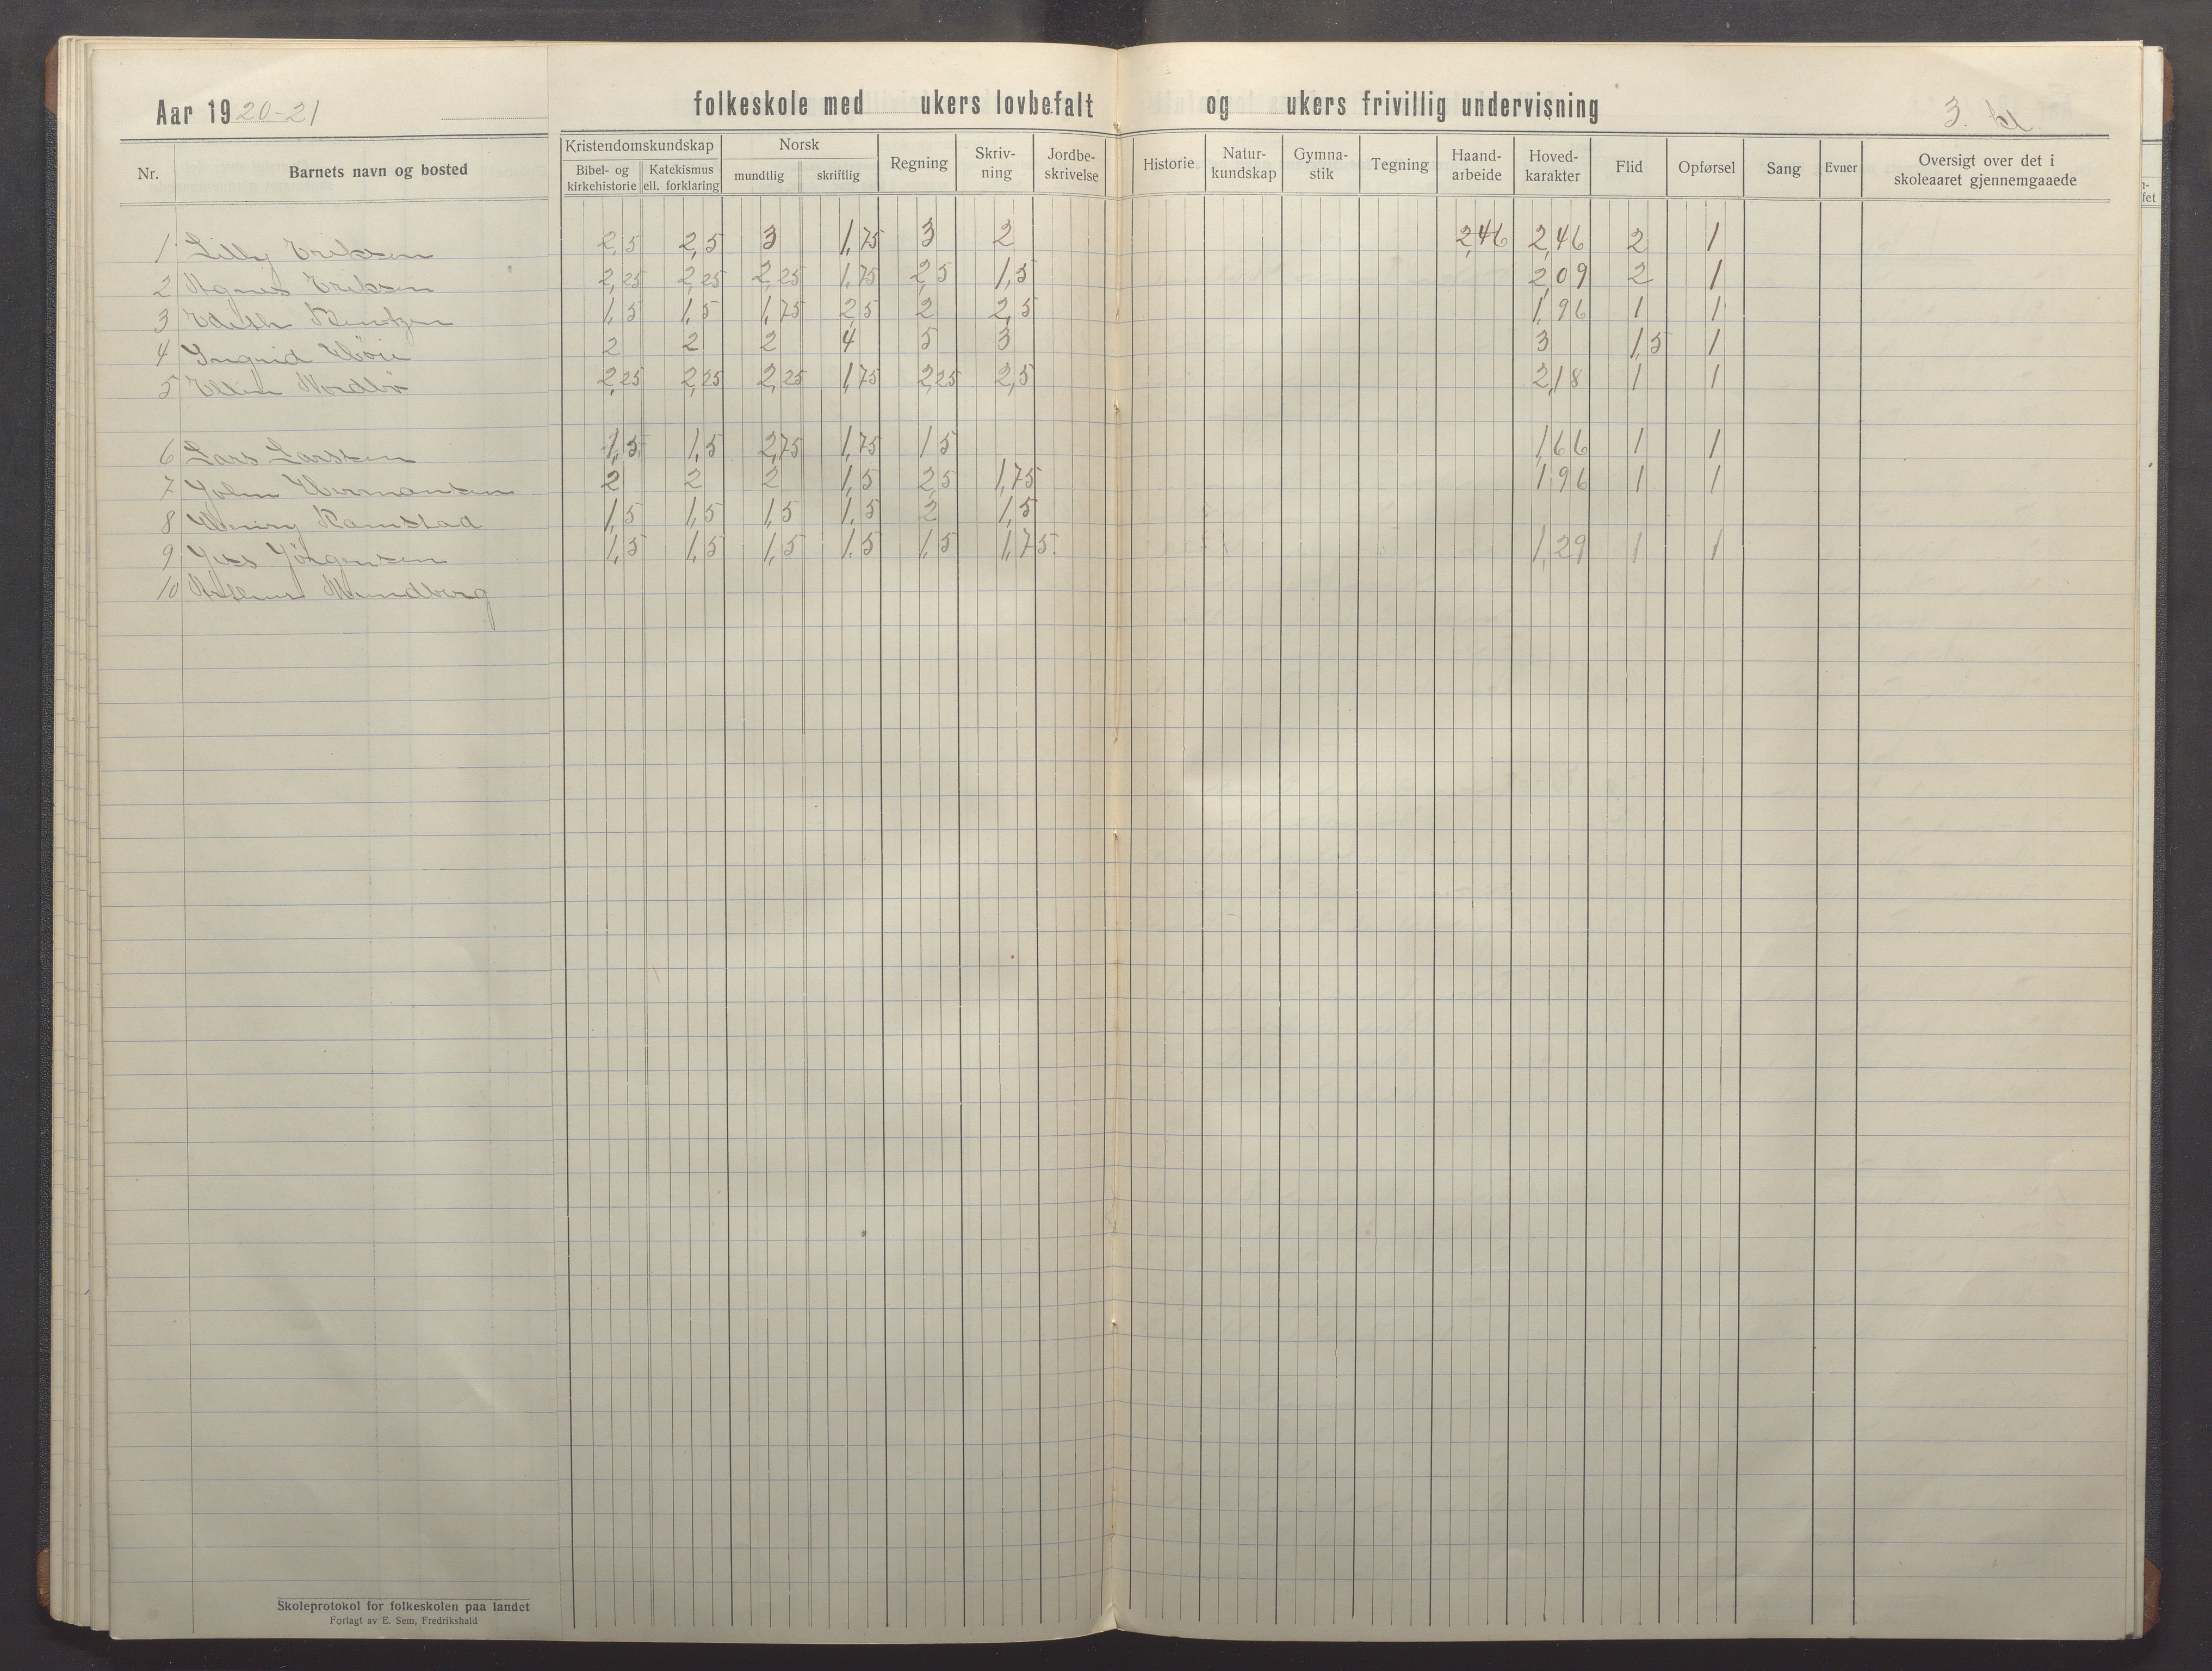 Aar 1920-21 folkeskole med ukers lovbefalt og ukers frivillig undervisning 3. kl.
Nr. Barnets navn og bosted Kristendomskundskap Bibel- og kirkehistorie Katekismus ell. forklaring Norsk mundtlig skriftlig Regning Skriv-ning Jordbe-skrivelse Historie Natur-kundskap Gymna-stik Tegning Haand-arbeide Hoved-karakter Flid Opførsel Sang Evner Oversigt over det i skoleaaret gjennemgaaede
1 Lilly Eriksen 2,5 2,5 3 1,75 3 2 2,46 2,46 2 1
2 Agnes Eriksen 2,25 2,25 2,25 1,75 2,5 1,5 2,09 2 1
3 Edith 1,5 1,5 1,75 2,5 2 2,5 1,96 1 1
4 Ingrid 2 2 2 4 5 3 3 1,5 1
5 Ellen Nordbø 2,25 2,25 2,25 1,75 2,25 2,5 2,18 1 1
6 Lars Larsen 1,5 1,5 2,75 1,75 1,5 1,66 1 1
7 John Hermansen 2 2 2 1,5 2,5 1,75 1,96 1 1
8 Henry Ramstad 1,5 1,5 1,5 1,5 2 1,5
9 Jess Jörgensen 1,5 1,5 1,5 1,5 1,5 1,75. 1,29 1 1
10
Skoleprotokol for folkeskolen paa landet
Forlagt av E. Sem, Fredrikshald